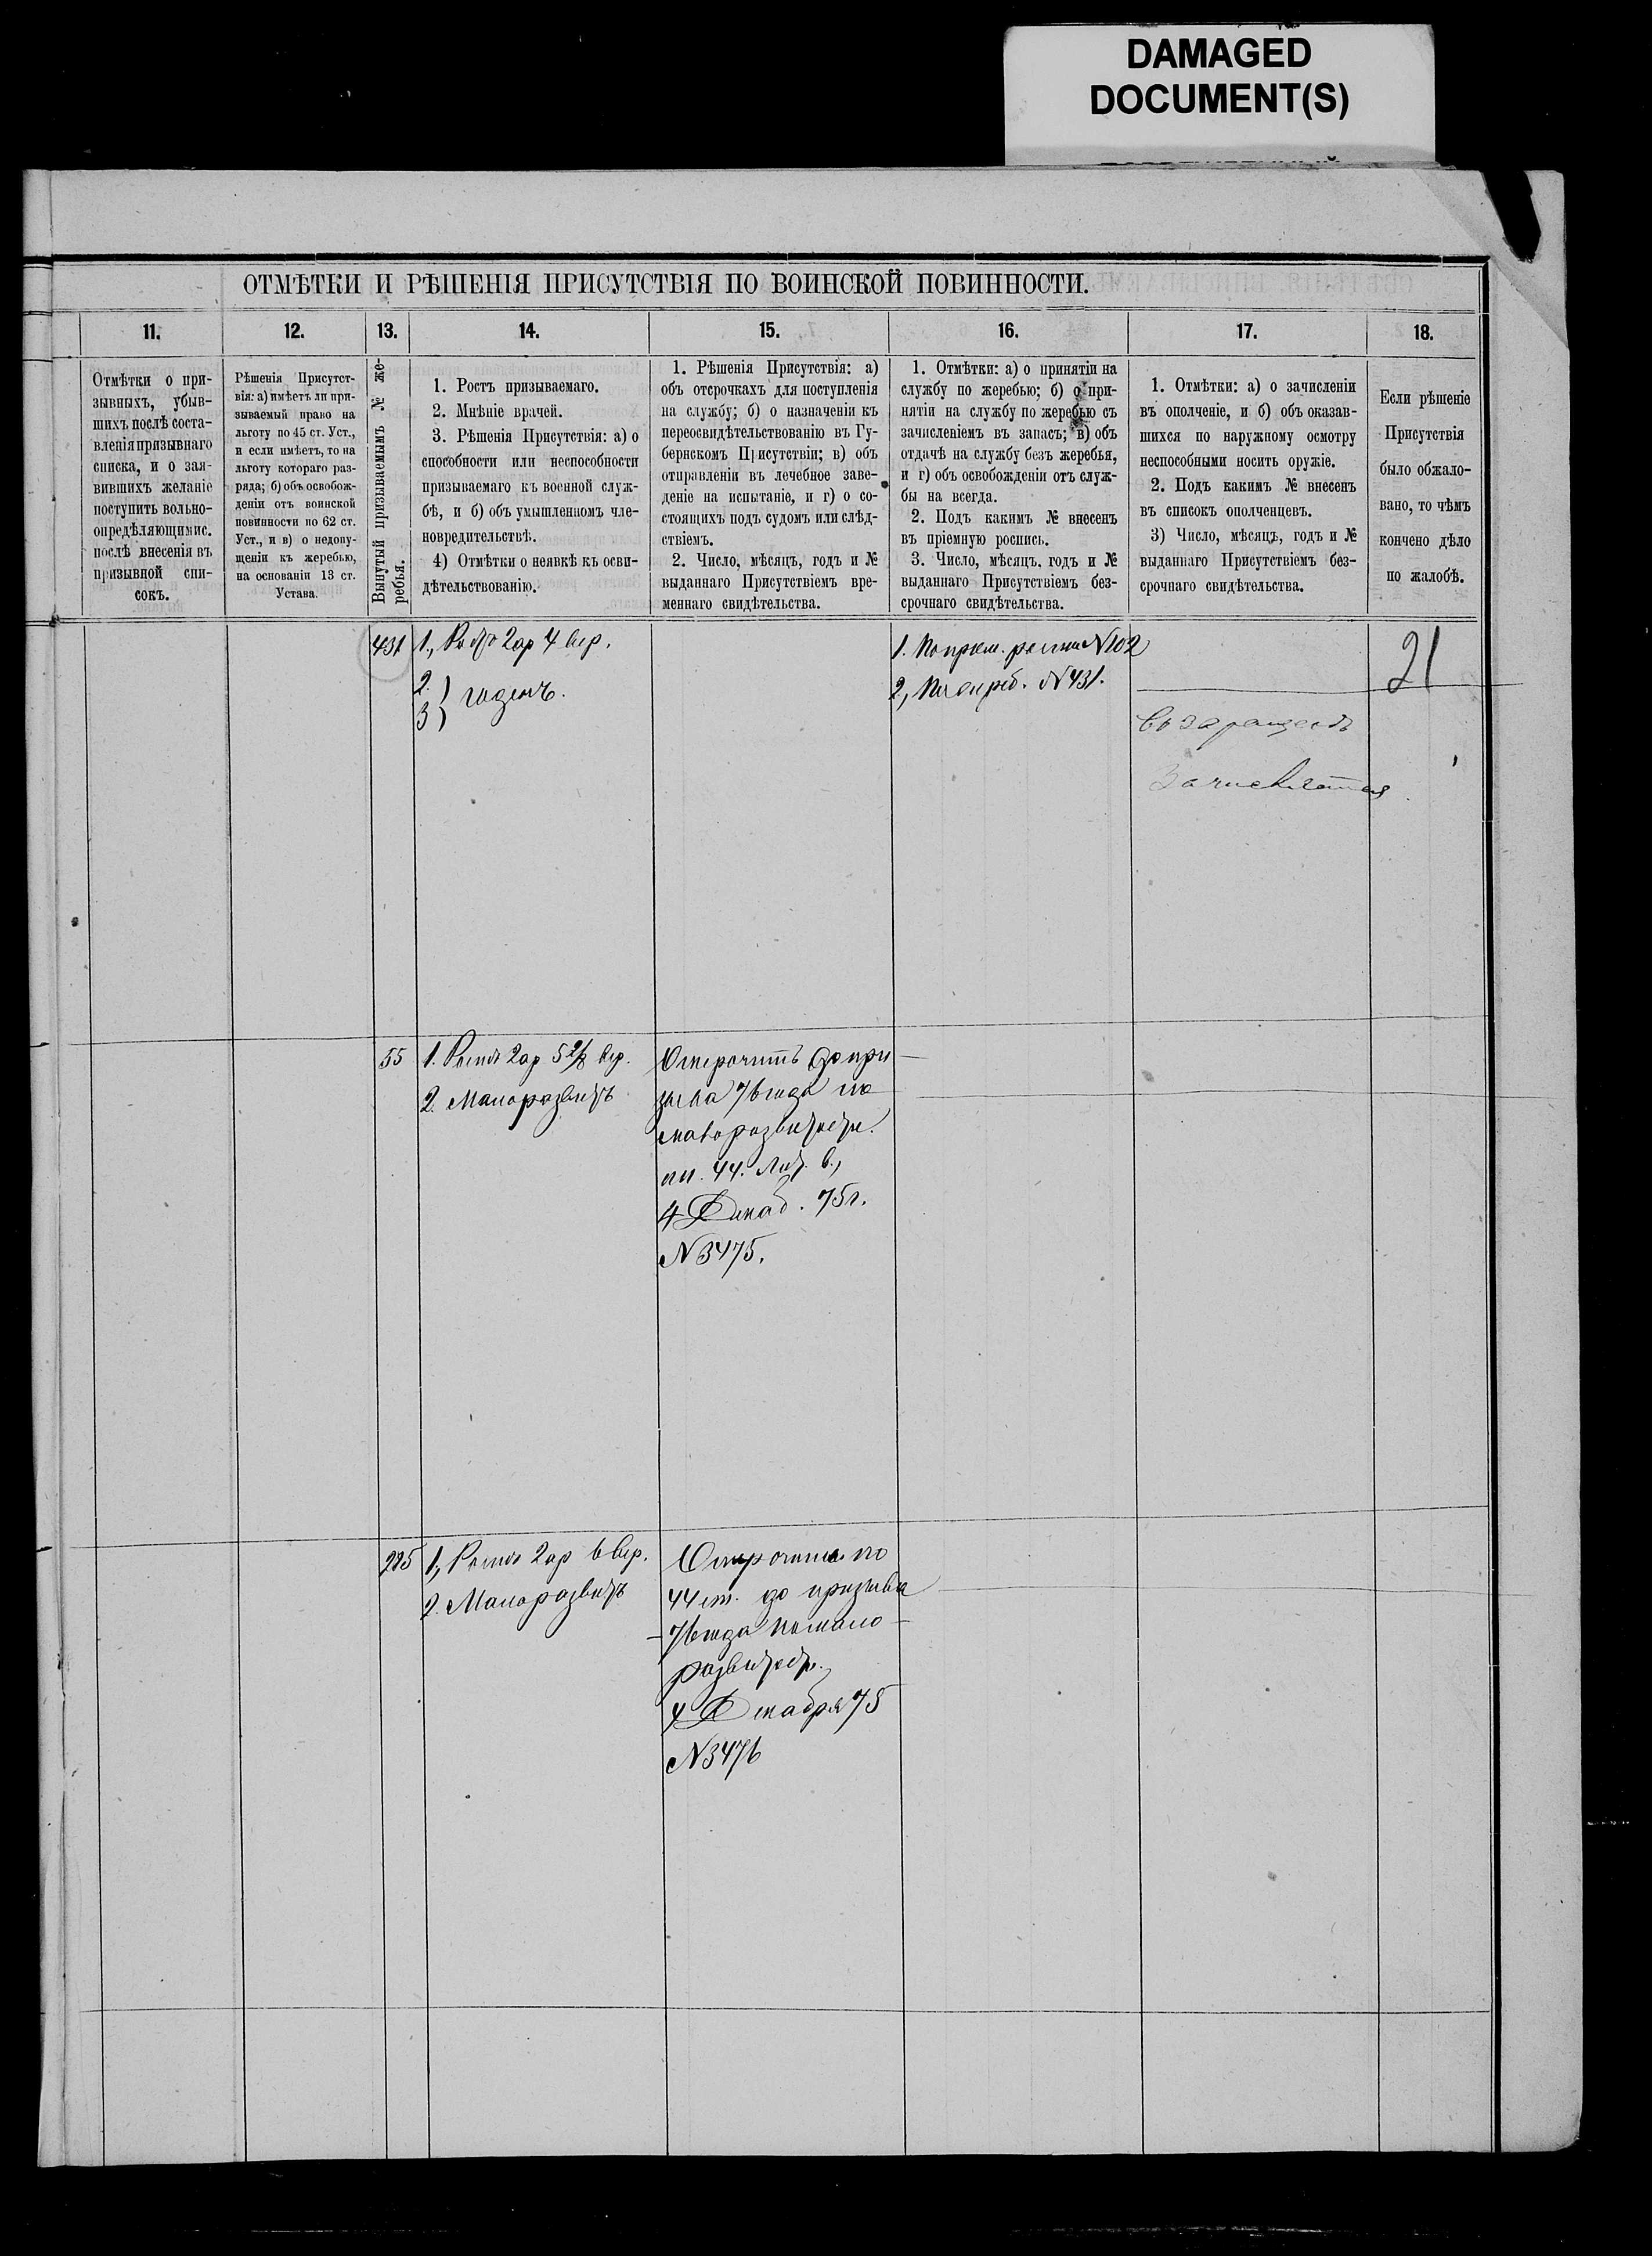 DAMAGED
DOCUMENT(S)
ОТМѢТКИ И РѢШЕНІЯ ПРИСУТСТВІЯ ПО ВОИНСКОЙ ПОВИННОСТИ.
11.
12.
13.
14.
15.
16.
17.
18.
Отмѣтки о при-
зывныхъ, убыв-
шихъ послѣ соста-
вленія призывнаго
списка, и о зая-
вившихъ желаніе
поступить вольно-
опредѣляющимис.
послѣ внесенія въ
призывной спи-
сокъ.
Рѣшенія Присутст-
вія: а) имѣетъ ли при-
зываемый право на
льготу по 45 ст. Уст.,
и если имѣетъ, то на
льготу котораго раз-
ряда; б) объ освобож-
деніи отъ воинской
повинности по 62 ст.
Уст., и в) о недопу-
щеніи къ жеребью,
на основаніи 13 ст.
Устава.
Вынутый призываемымъ № же-
ребья.
1. Ростъ призываемаго.
2. Мнѣніе врачей.
3. Рѣшенія Присутствія: а) о
способности или неспособности
призываемаго къ военной служ-
бѣ, и б) объ умышленномъ чле-
новредительствѣ.
4) Отмѣтки о неявкѣ къ осви-
дѣтельствованію.
1. Рѣшенія Присутствія: а)
объ отсрочкахъ для поступленія
на службу; б) о назначеніи къ
переосвидѣтельствованію въ Гу-
бернскомъ Присутствіи; в) объ
отправленіи въ лечебное заве-
деніе на испытаніе, и г) о со-
стоящихъ подъ судомъ или слѣд-
ствіемъ.
2. Число, мѣсяцъ, годъ и №
выданнаго Присутствіемъ вре-
меннаго свидѣтельства.
1. Отмѣтки: а) о принятіи на
службу по жеребью; б) о при-
нятіи на службу по жеребью съ
зачисленіемъ въ запасъ; в) объ
отдачѣ на службу безъ жеребья,
и г) объ освобожденіи отъ служ-
бы на всегда.
2. Подъ какимъ № внесенъ
въ пріемную роспись.
3. Число, мѣсяцъ, годъ и №
выданнаго Присутствіемъ без-
срочнаго свидѣтельства.
1. Отмѣтки: а) о зачисленіи
въ ополченіе, и б) объ оказав-
шихся по наружному осмотру
неспособными носить оружіе.
2. Подъ какимъ № внесенъ
въ списокъ ополченцевъ.
3) Число, мѣсяцъ, годъ и №
выданнаго Присутствіемъ без-
срочнаго свидѣтельства.
Если рѣшеніе
Присутствія
было обжало-
вано, то чѣмъ
кончено дѣло
по жалобѣ.
431
1., Ростъ 2 ар 4 вер.
2.)
3) годенъ.
1. По прем. росписи N 102
2., По жереб. N 431.
21
55
1. Ростъ 2 ар 5 2/8 вер.
2. Малоразвитъ
Отсрочить до при
зыва 76 года по
малоразвитости.
44. Лит. в.,
4 Декаб. 75 г.
N 3475.
225
1., Ростъ 2 ар 6 вер.
2. Малоразвитъ
Отсрочить по
44 ст. до призыва
76 года по мало
развитости.
4 Декабря 75
N 3476